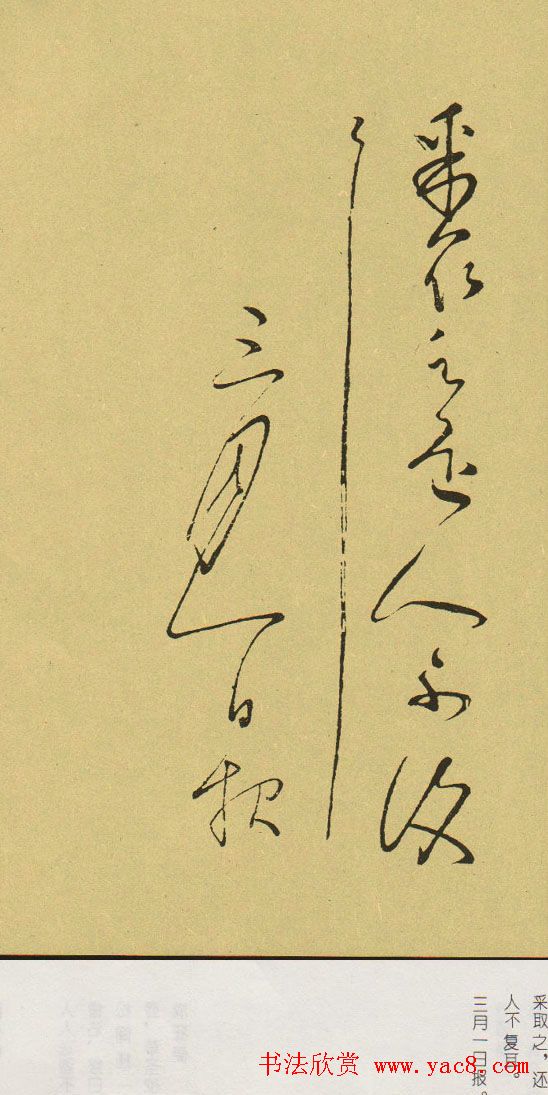 采取之還人不復
耳
三月一日報
采取之，还
人不复耳。
三月一日报。
书法欣赏 www.yac8.com